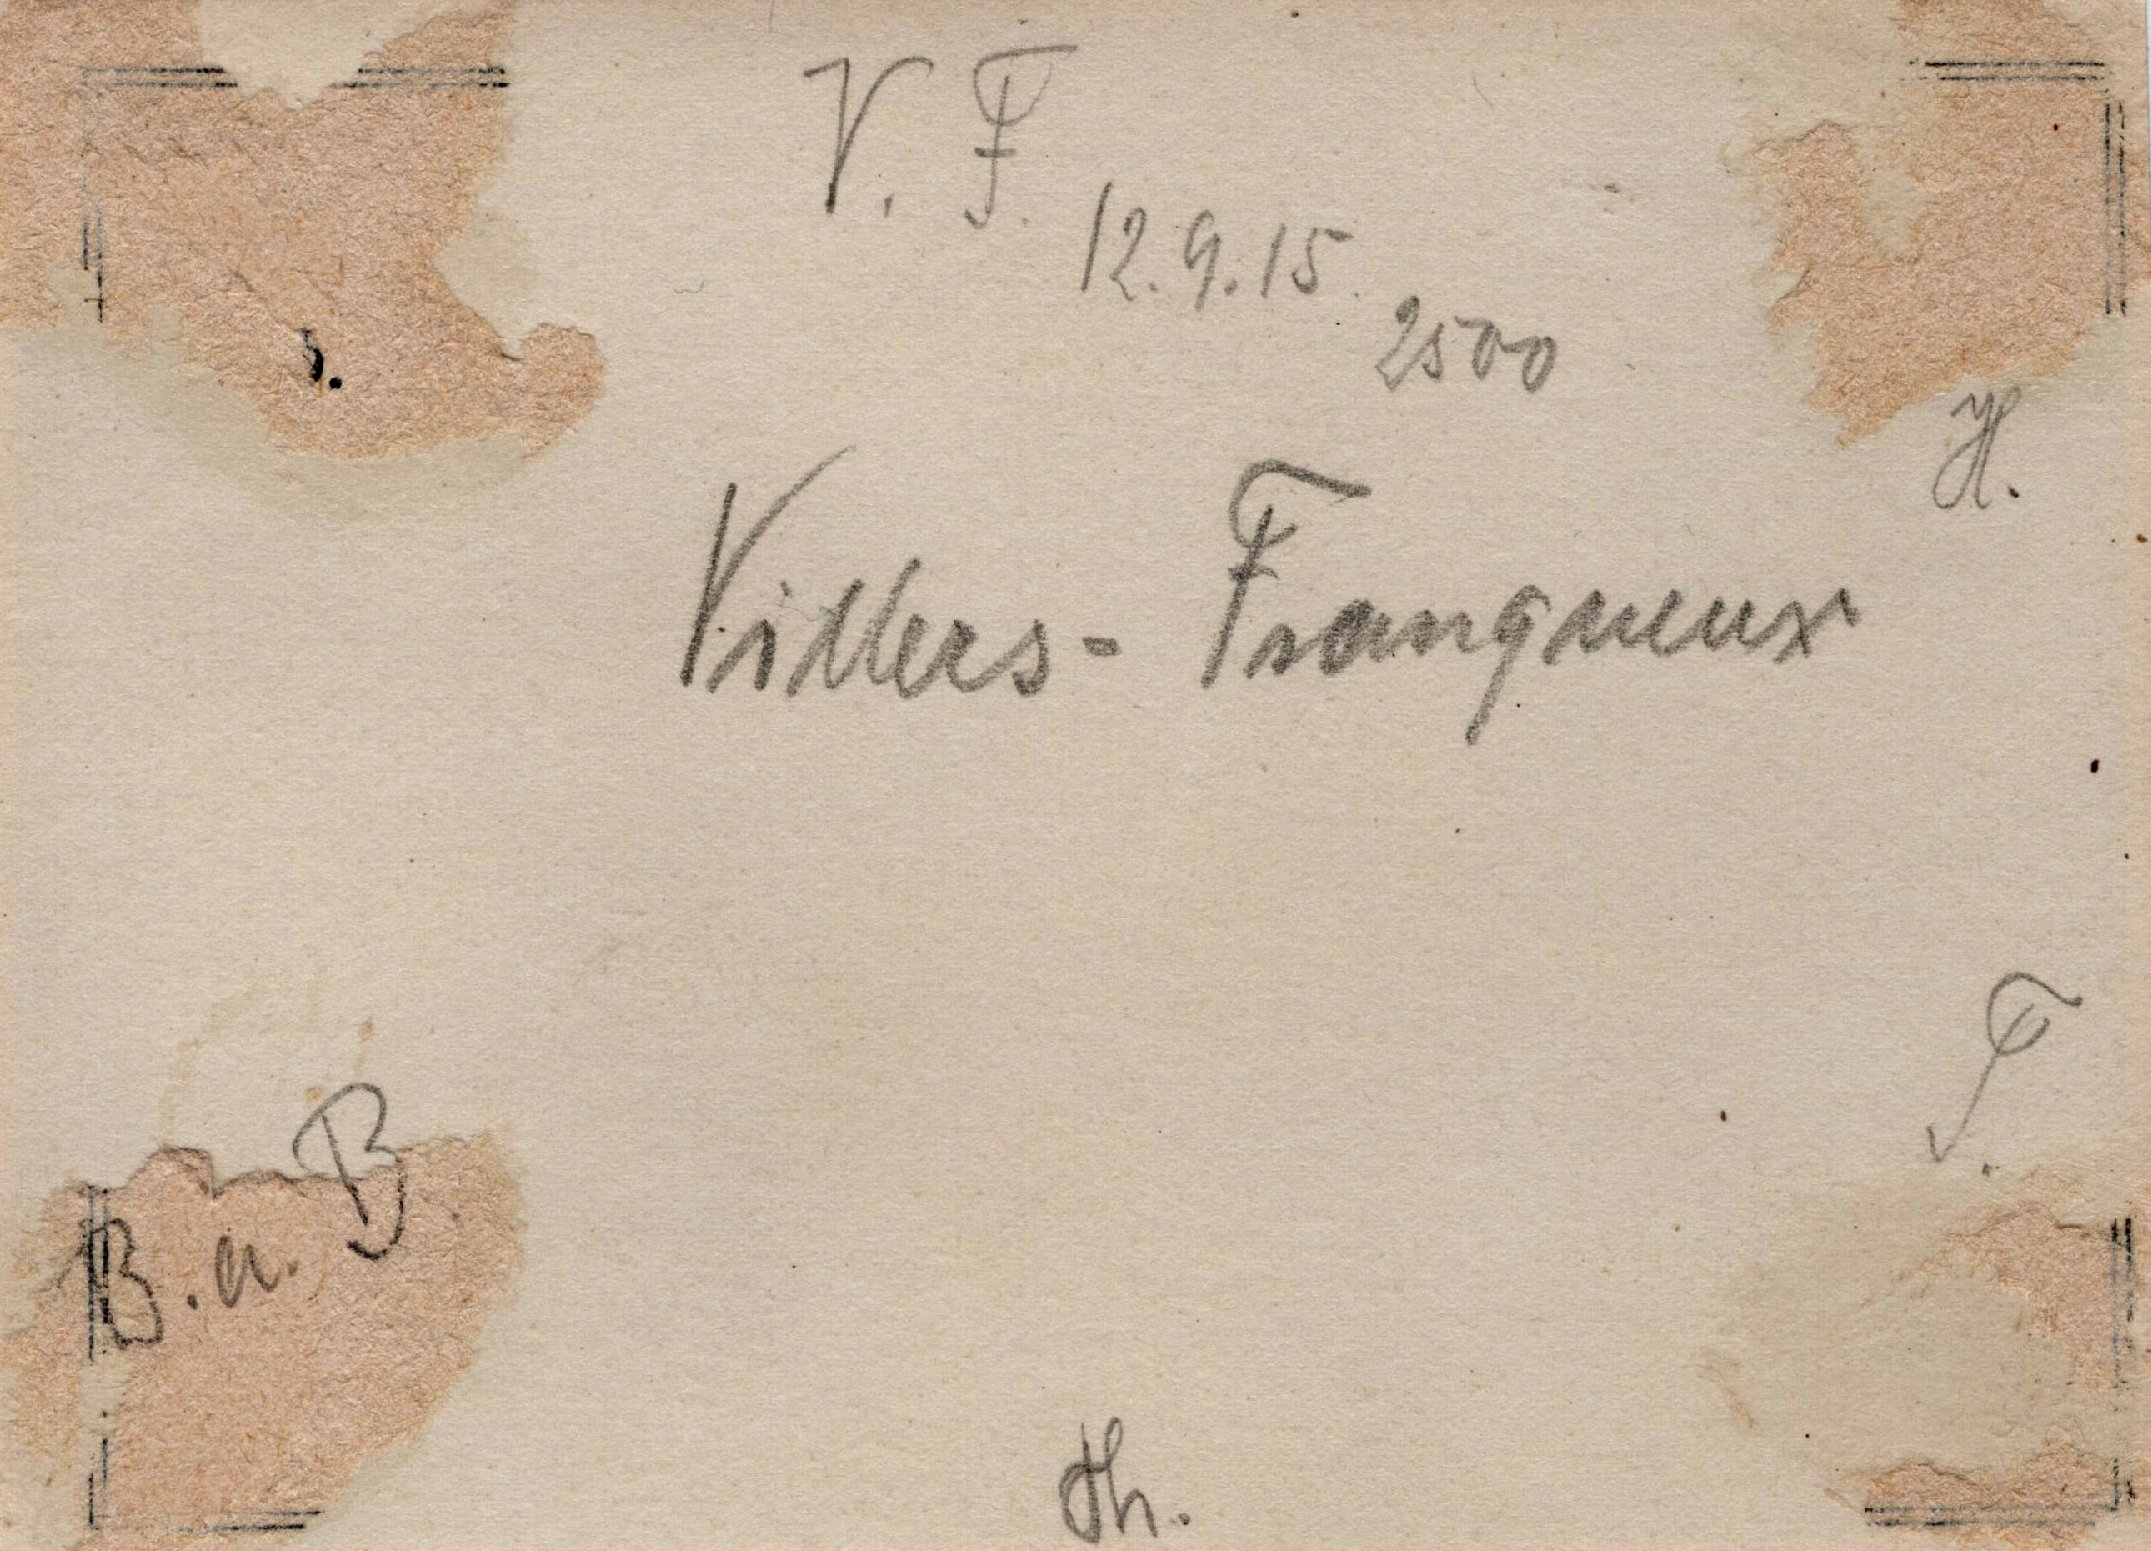 V. F.
12.9.15.
2500
H.
Villers-Franqueux
F.
B. u. B
Th.